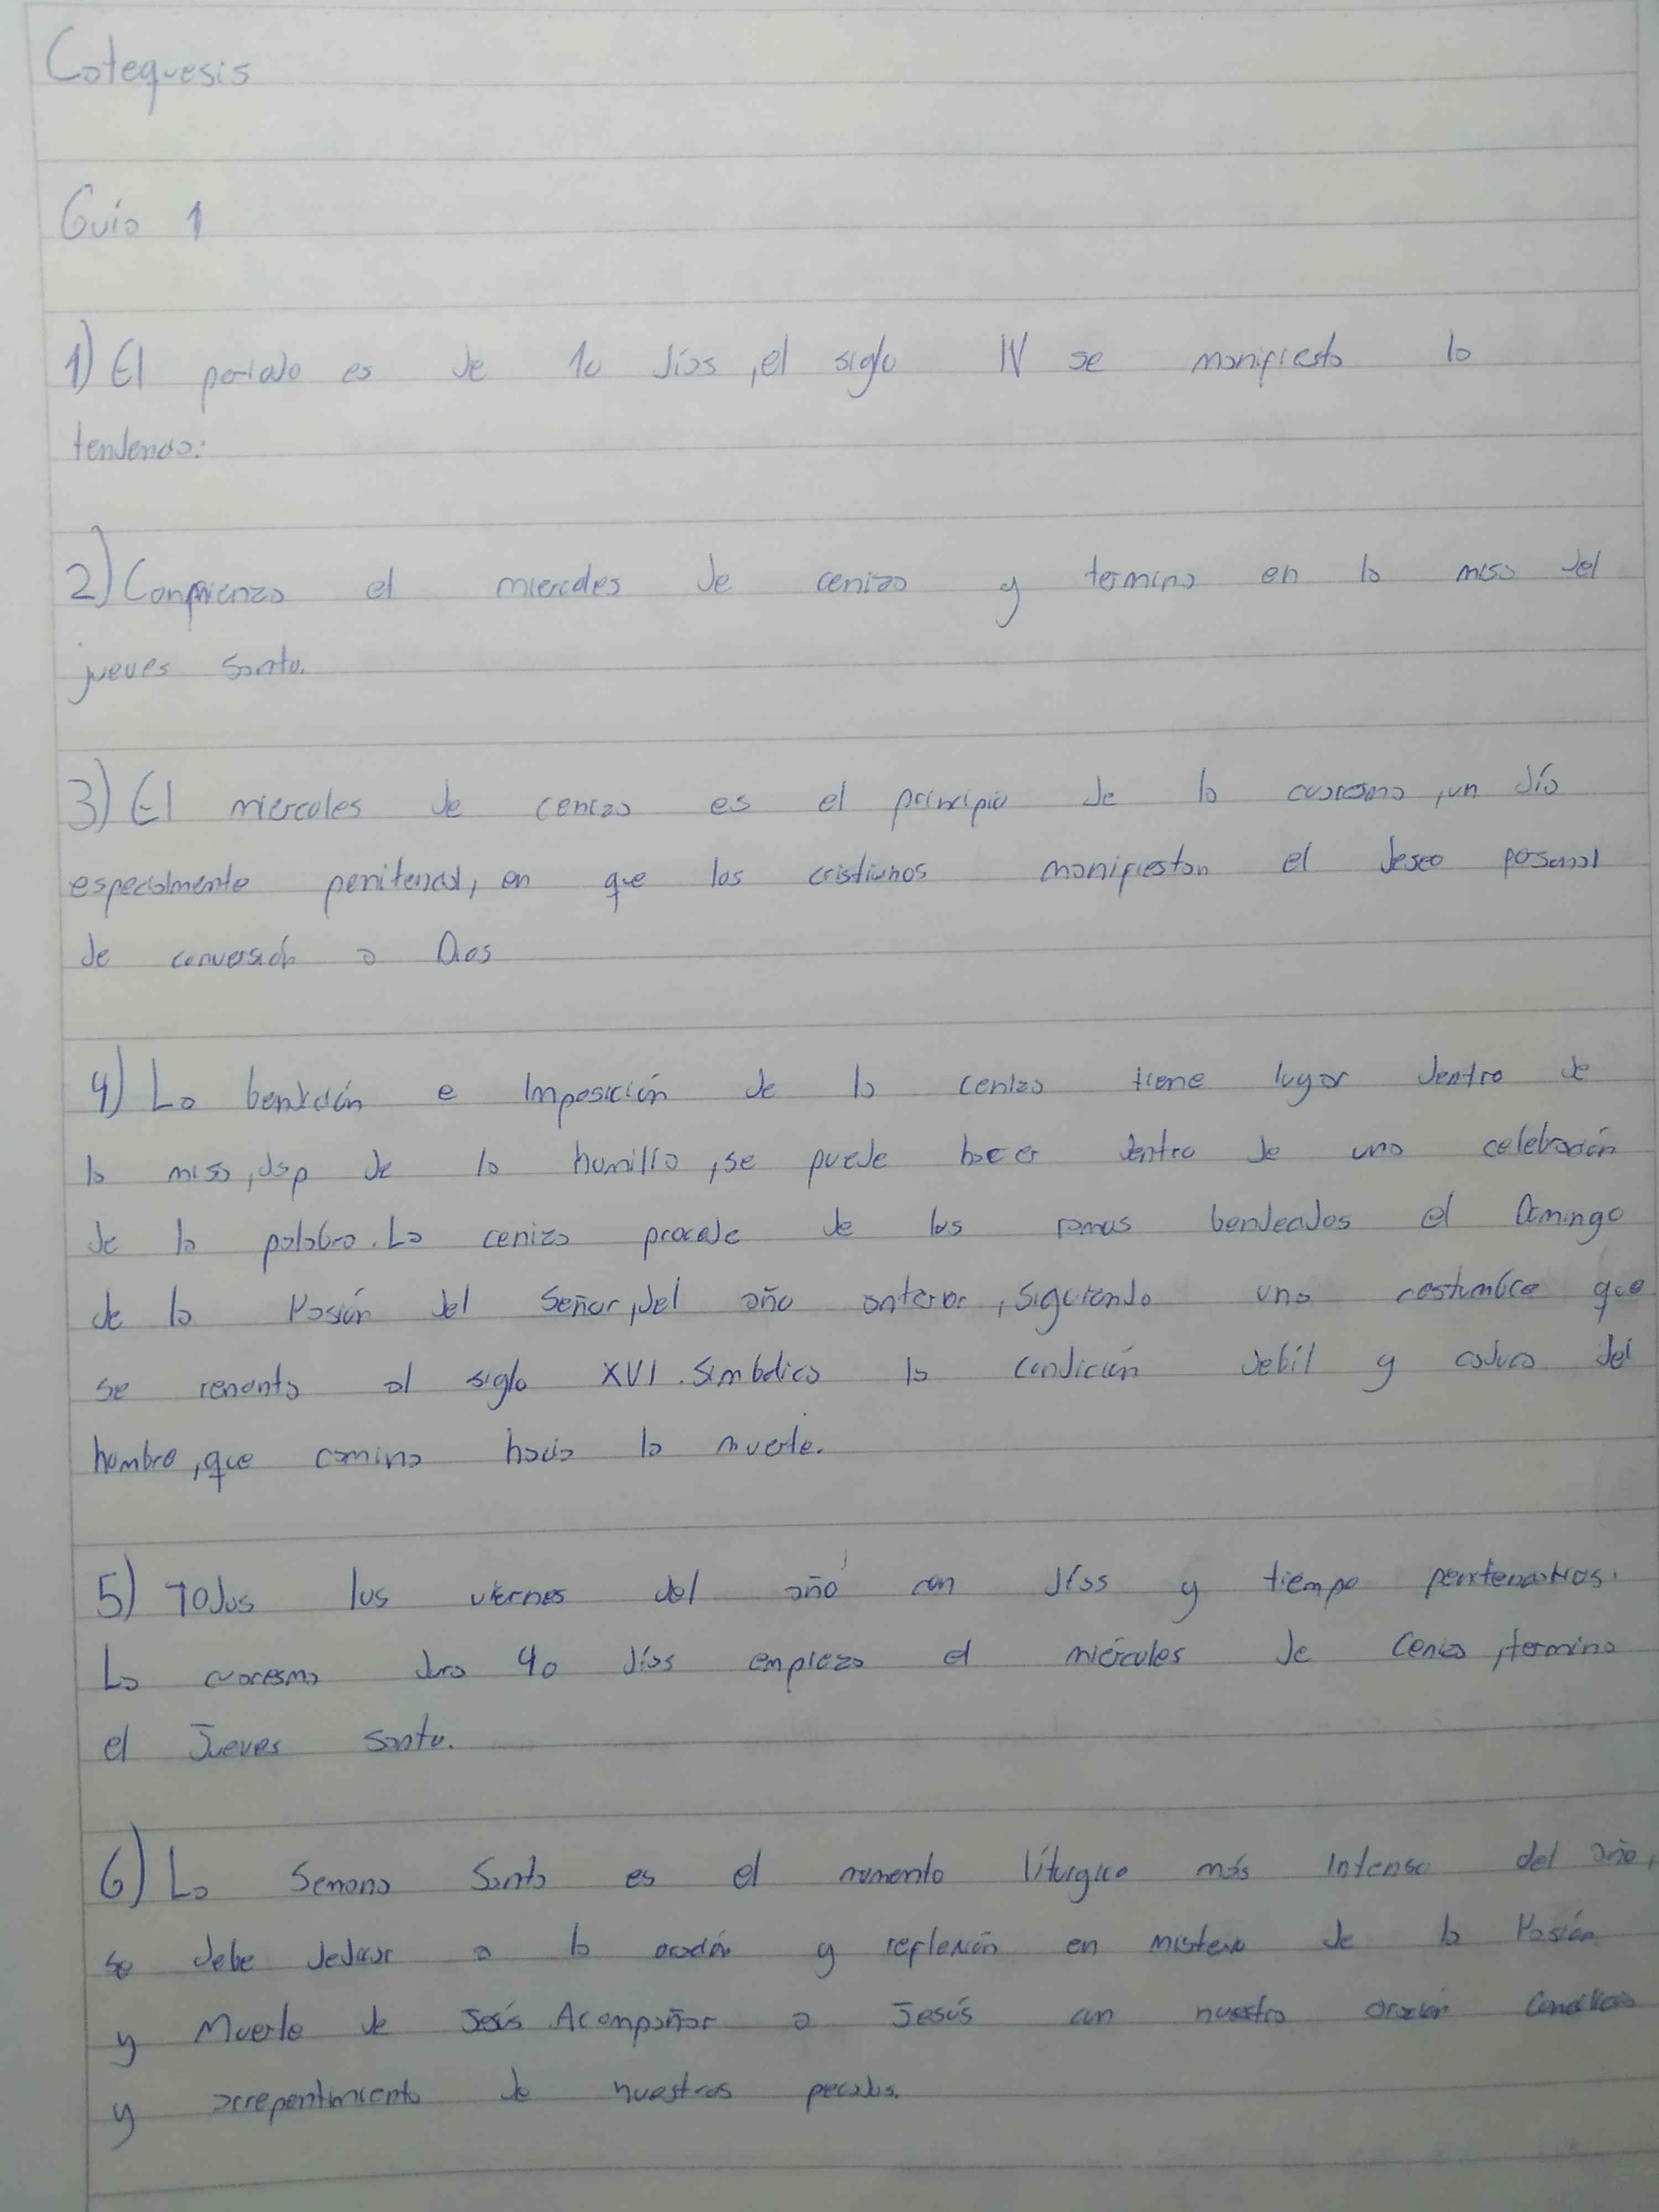 Catequesis
Guía 1
1) El periodo es de 10 días, el siglo IV se manifiesta la
tendencia:
2) Comienza el miercoles de ceniza y termina en la misa del
jueves Santo.
3) El miercoles de ceniza es el principio de la cuaresma, un día
especialmente penitencial, en que los cristianos manifiestan el deseo personal
de conversión a Dios
4) La bendición e Imposición de la ceniza tiene lugar dentro de
la misa, dsp de la homilía, se puede hacer dentro de una celebración
de la palabra. La ceniza procede de las ramas bendecidas el Domingo
de la Pasión del Señor, del año anterior, siguiendo una costumbre que
se remonta al siglo XVI. Simbolica la condición debil y caduca del
hombre, que camina hacia la muerte.
5) Todos los viernes del año son días y tiempo penitenciarios.
La cuaresma dura 40 días empieza el miércoles de Ceniza, termina
el Jueves Santo.
6) La Semana Santa es el momento líturgico más intenso del año,
se debe dedicar a la oración y reflexión en misterio de la Pasión
y Muerte de Jesús. Acompañar a Jesús con nuestra oración
y arrepentimiento de nuestros pecados.